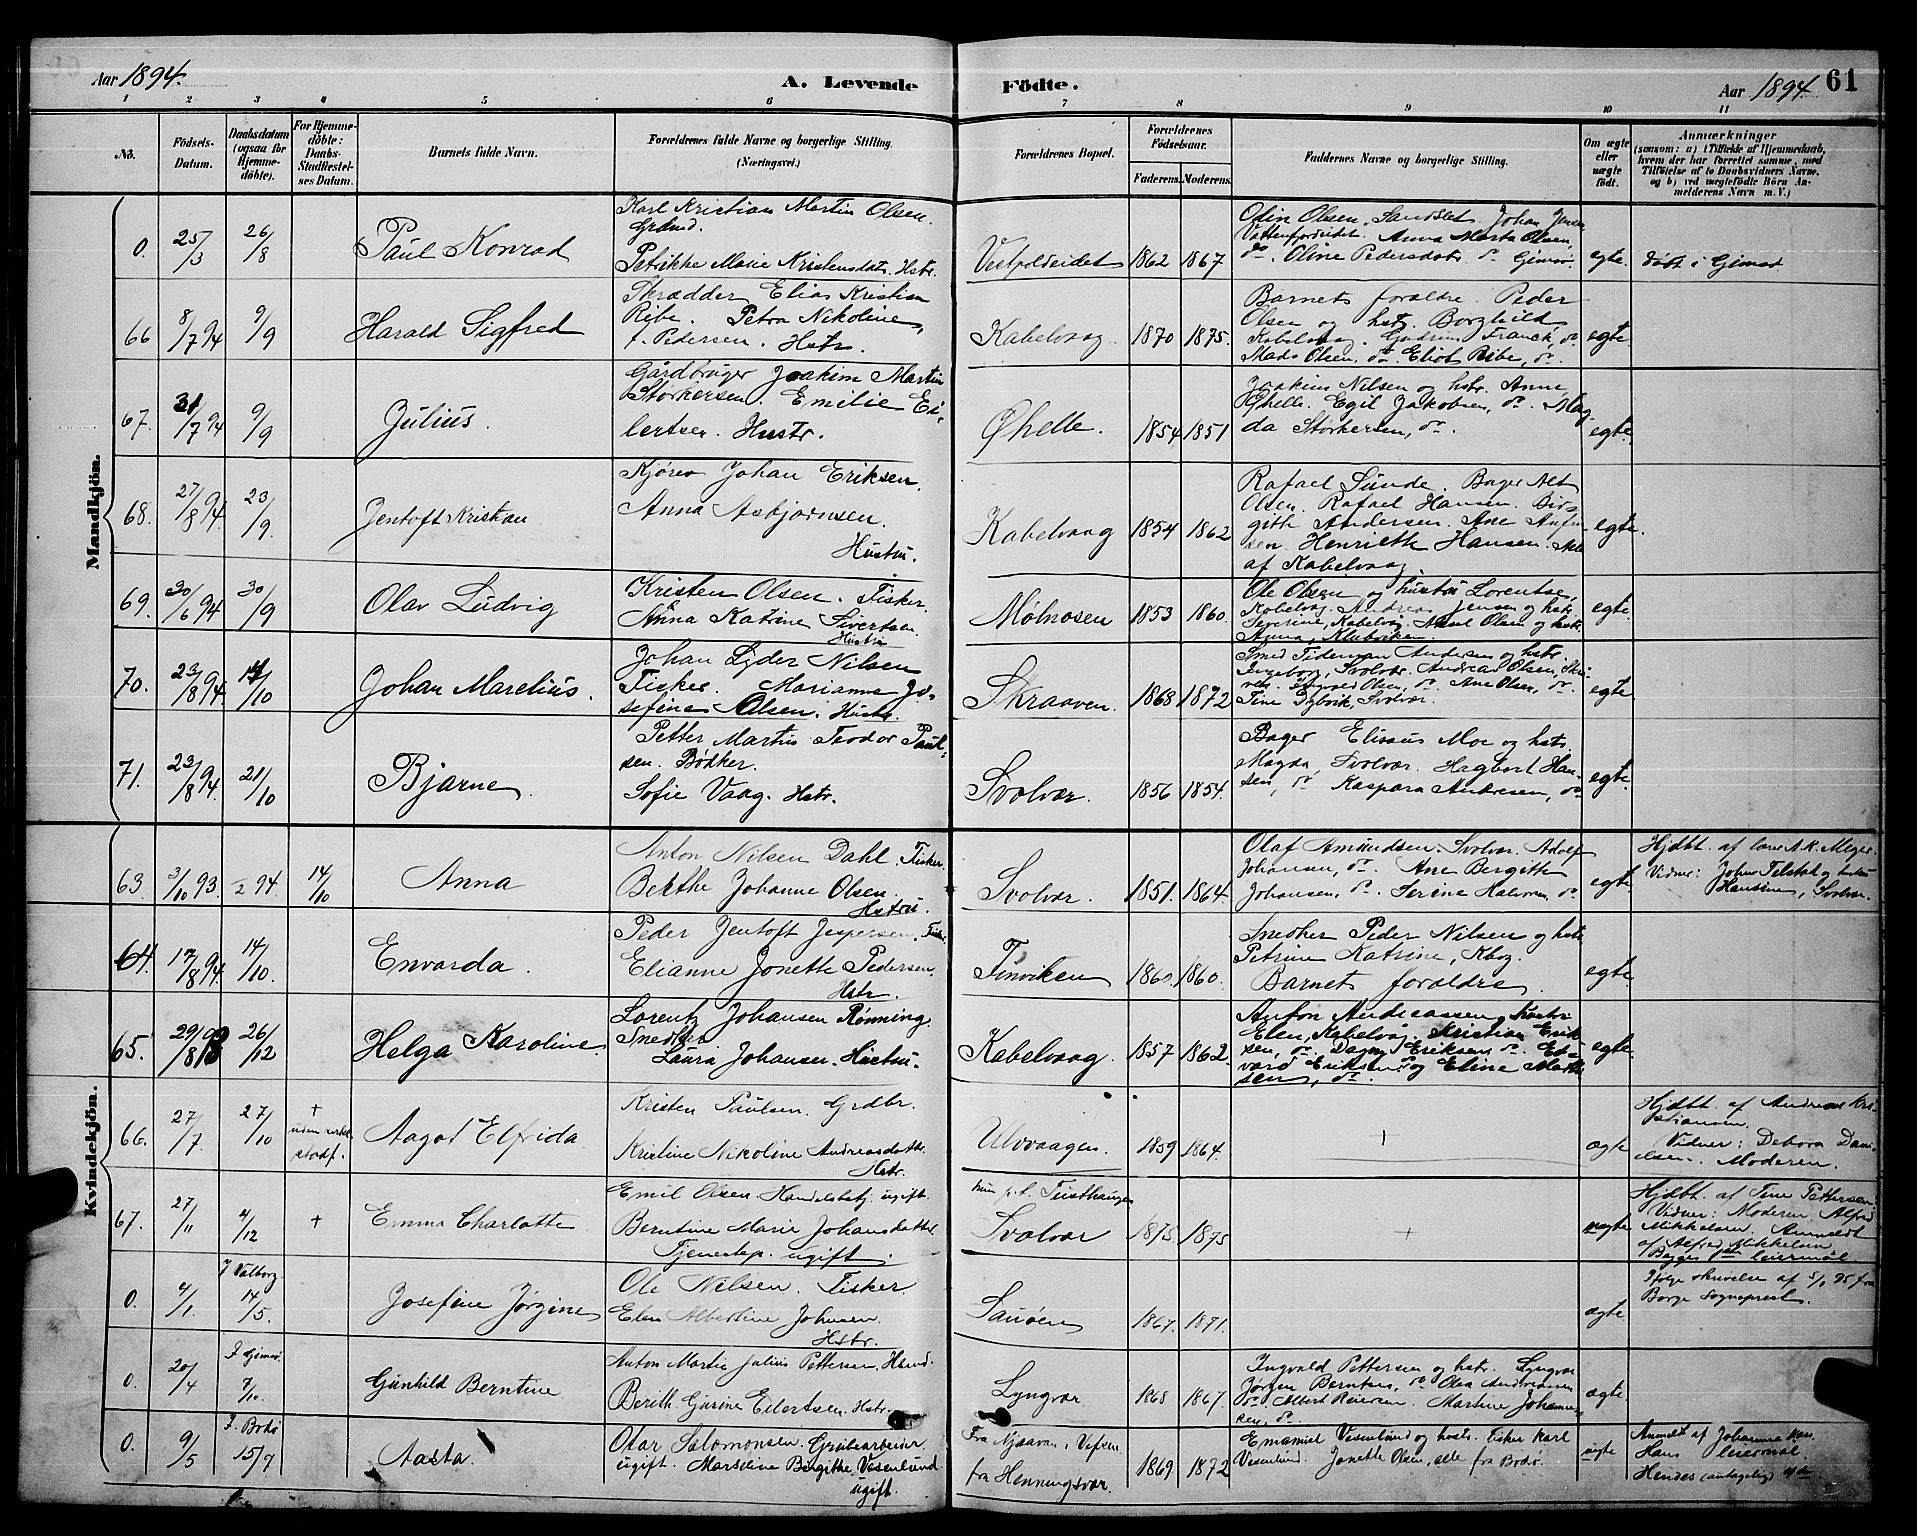 Aar 1894.
A. Levende
Födte.
Aar 1894
61
1 2 3 4 5 6 7 8 9 10 11
No.
Födsels-
Datum.
Daabsdatum
(ogsaa for
Hjemme-
döbte).
For Hjemme-
döbte:
Daabs-
Stadfæstel-
ses Datum.
Barnets fulde Navn.
Forældrenes fulde Navne og borgerlige Stilling.
(Næringsvei.)
Forældrenes Bopæl.
Forældrenes
Födselsaar.
Faderens. Moderens.
Faddernes Navne og borgerlige Stilling.
Om ægte
eller
uægte
födt.
Anmærkninger
(saasom: a) i Tilfælde af Hjemmedaab,
hvem der har forrettet samme, med
Tilföielse af to Daabsvidners Navne,
og b) ved uægtefödte Börn An-
melderens Navn m. V.)
Mandkjön.
0. 25/3 26/8 Paul Konrad
Karl Kristian Martin Olsen.
Grdmd.
Petrikke Marie Kristensdat. Hstr.
Vestpoldeidet 1862 1867
Odin Olsen, Sandslet. Johan Jensen
Vattenfjordeidet. Anna Marta Olsen,
do. Oline Pedersdatr. do Gimsø.
egte. Døbt i Gimsø
66 8/7 94 9/9 Harald Sigfred
Skrædder Elias Kristian
Ribe. Petra Nikoline,
f. Pedersen. Hstr.
Kabelvaag 1870 1875.
Barnets foraldre. Peder
Olsen og hstr. Borghild
Kabelvaag. Gudrun Franck, do
Mads Olsen, do Eliot Ribe, do.
egte
67. 31/7 94 9/9 Julius.
Gårdbruger Joakim Martin
Storkersen. Emilie Ei-
lertsen. Hustr.
Øhelle. 1854 1851
Joakim Nilsen og hstr. Anne
Øhelle. Egil Jakobsen, do. Mag-
da Storkersen, do.
egte.
68. 27/8 94 23/9 Jentoft Kristian
Johan Eriksen.
Anna Asbjørnsen.
Hustru.
Kabelvaag 1854 1862
Rafael Sunde. Bager Alt
Olsen. Rafael Hansen. Bir-
gitte Andersen. Ane
sen. Henriette Hansen. Alle
af Kabelvaag.
egte.
69. 30/6 94 30/9 Olav Ludvig
Kristen Olsen. Fisker.
Anna Katrine Sivertsen.
Hustru
Mølnosen 1853 1860.
Ole Olsen og hustru Lorentse,
Kabelvåg. Andreas Jensen og hstr
Severine, Kabelvåg. Olsen og hstr.
Anna,
egte.
70. 23/8 94 14/10 Johan Marelius.
Johan Lyder Nilsen
Fisker. Marianna Jo-
sefine Olsen. Hustr.
Skraaven. 1868 1872
Smed Tideman Andersen og hstr.
Ingeborg, Svolvær. Andreas Olsen, Skr
Olsen, do. Ane Olsen, do.
Tine Svolvær.
egte
71. 23/8 94. 21/10 Bjarne
Petter Martin Teodor Paul-
sen. Bødker.
Sofie Vaag. Hstr.
Svolvær. 1856 1854.
Bager Elisæus Moe og hstr.
Magda, Svolvær. Hagbart Han-
sen, do Kaspara Andresen, do
egte.
Kvindekjön.
63. 3/10 93 /2 94. 14/10 Anna
Anton Nilsen Dahl. Fisker.
Berthe Johanne Olsen.
Hstru.
Svolvær. 1851. 1864.
Olaf Amundsen. Svolvær. Adolf
Johansen, do. Ane Bergitte
Johansen, do. Serine Halvorsen, do
egte
Hjdbt. af A.K. Meyer.
Vidner: Johan og hustru
Svolvær.
64. 17/8 94. 14/10. Envarda.
Peder Jentoft Jespersen. Fisker
Elianne Jonette Pedersen.
Hstr.
Finviken 1860. 1860.
Snedker Peder Nilsen og hstr
Petrine Katrine, Kbvg.
Barnets foraldre.
egte
65. 29/8 93 26/12 Helga Karoline
Lorentz Johansen Rønning
Snedker
Laura Johansen. Hustru.
Kabelvaag. 1857 1862
Anton Andreassen, hustr
Elen, Kabelvåg, Kristian Erik-
sen, do. Dagny Eriksen do. Ed-
vard Eriksen og Eline Mort-
sen, do.
egte.
66. 27/7. 27/10 +
uden
stadf.
Aagot Elfrida
Kristen Paulsen. Grdbr.
Kristine Nikoline Andreasdatter
Hstr.
Ulvvaagen. 1859 1864. +
ægte
Hjdbt. af Andreas Kri-
stiansen.
Vidner: Debora Dani-
elsen. Moderen.
67. 27/11 4/12 + Emma Charlotte
Emil Olsen. Handelsbetj. ugift.
Berntine Marie Johansdatter
Tjenestep. ugift.
hun p.t.
Svolvær 1875. 1875 +
uægte
Hjdbt. af Tine Pettersen.
Vidner: Moderen. Alfred
Mikkelsen. Anmeldt
af Alfred Mikkelsen
Begges leiermål
0. 4/1. I Valborg
14/5. Josefine Jørgine
Ole Nilsen. Fisker
Elen Albertine Johnsen.
Hstr.
Sauøen 1867. 1871.
ægte
Ifølge skrivelse af 5/1 95 fra
Borge Sogneprest.
0. 20/4 I Gimsø.
7/10. Gunhild Berntine
Anton Martin Julius Pettersen. Hand.
Berith Gurine Eilertsen. Hstr.
Lyngvær 1868 1867.
Ingvald Pettersen og hstr. Lyngvær
Jørgen Berntsen, do. Olea Andreassen
do. Albert Reiersen. Martine Johannes-
sen, do.
ægte
0. 9/5 I Bodø
15/7 Aasta.
Olar Salomonsen. Grubearbeider
ugift. Marseline Bergitte Vesenlund.
ugift.
Fra i Vefsen
fra Henningsvær. 1869 1872
Emanuel Vesenlund og hustr. Fisker Karl
Vesenlund. Jonette Olsen, alle fra Bodø.
uægte
Anmeldt af Johanna
Hans leiermål
Hendes (antagelig) 2det